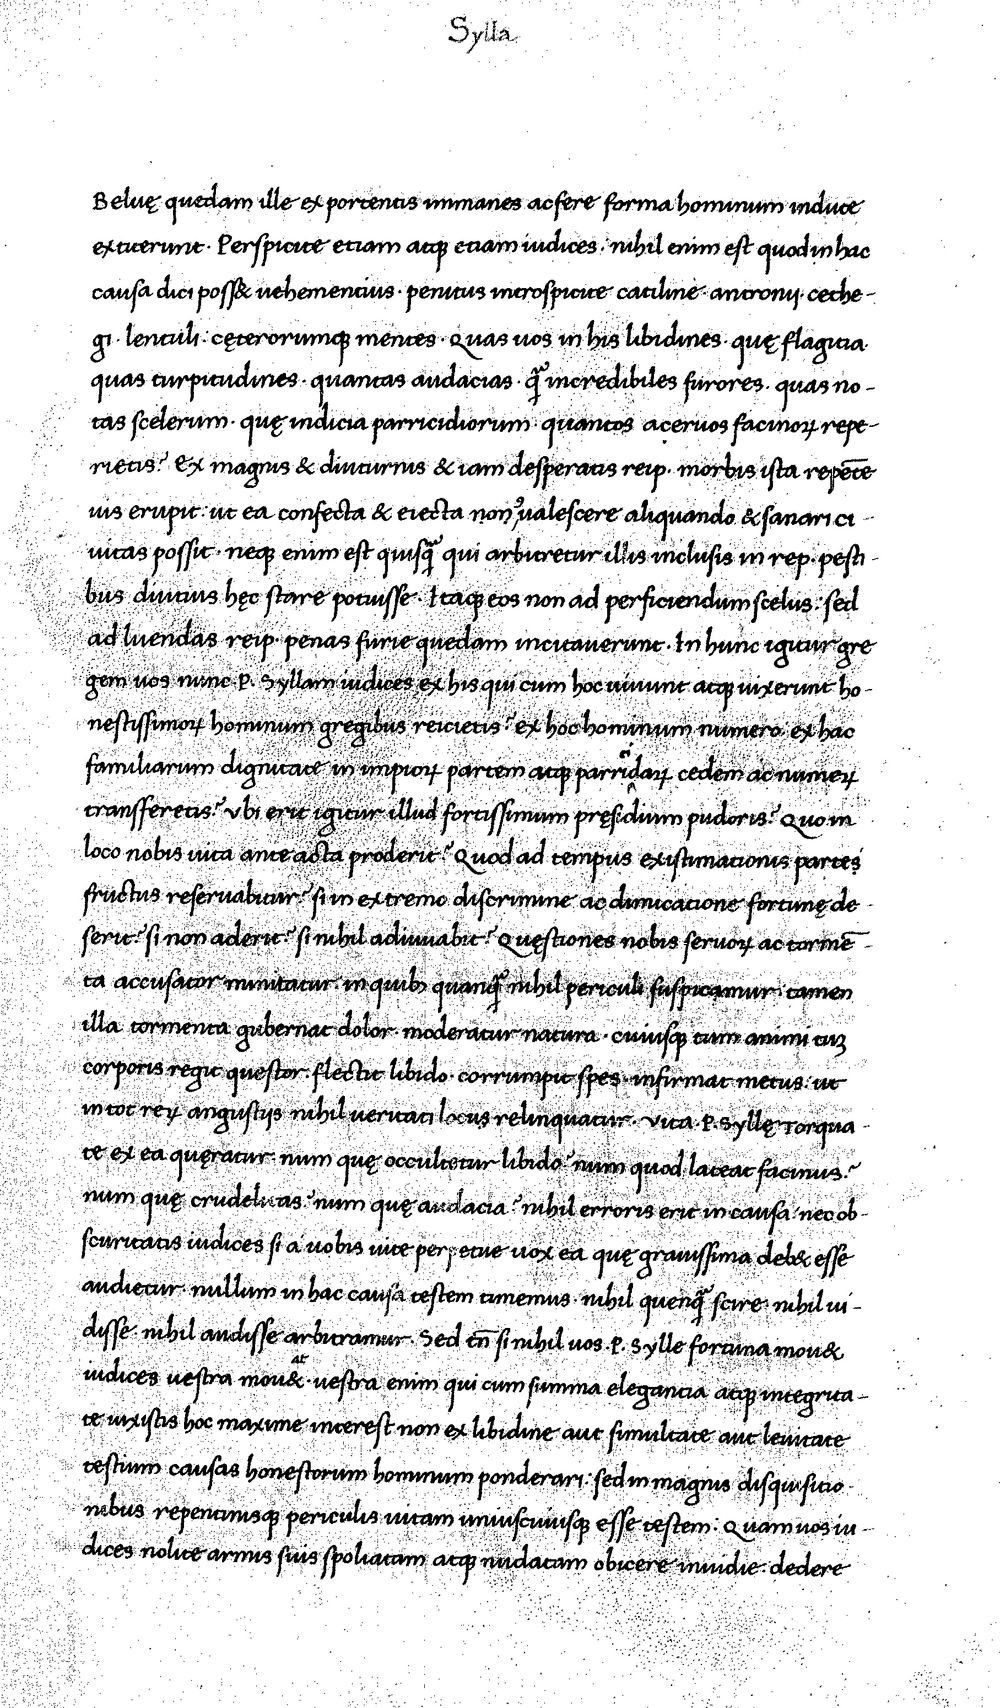 Sylla
Beluę quedam ille ex portentis immanes ac fere forma hominum indute
extiterunt. Perspicite etiam atq; etiam iudices. nihil enim est quod in hac
causa dici poss& uehementius. penitus introspicite catiline. antronij. cethe-
gi. lentuli. cęterorumq; mentes. Quas uos in his libidines. quę flagitia.
quas turpitudines. quantas audacias. q̃ incredibiles furores. quas no-
tas scelerum. quę indicia parricidiorum. quantos aceruos facinoꝝ repe-
rietis? Ex magnis & diuturnis & iam desperatis reip. morbis ista repẽte
uis erupit: ut ea confecta & eiecta nonꝯualescere aliquando & sanari ci-
uitas possit. neq; enim est quisq̃ qui arbitretur illis inclusis in rep. pesti-
bus diutius hęc stare potuisse. Itaq; eos non ad perficiendum scelus: sed
ad luendas reip. penas furie quedam incitauerunt. In hunc igitur gre
gem uos nunc P. Syllam iudices ex his qui cum hoc uiuunt atq; uixerunt ho-
nestissimoꝝ hominum gregibus reicietis? ex hoc hominum numero. ex hac
familiarum dignitate in impioꝝ partem atq; parridaꝝ cedem ac numeꝝ
transferetis? Vbi erit igitur illud fortissimum pręsidium pudoris? Quo in
loco nobis uita ante acta proderit? Quod ad tempus existimationis partes
fructus reseruabitur? si in extremo discrimine ac dimicatione fortunę de-
serit? si non aderit? si nihil adiuuabit? Quęstiones nobis seruoꝝ ac tormẽ-
ta accusator minitatur. in quib; quanq̃ nihil periculi suspicamur. tamen
illa tormenta gubernat dolor. moderatur natura. cuiusq; tum animi tuꝫ
corporis regit questor. flectit libido. corrumpit spes. infirmat metus: ut
in tot reꝝ angustijs nihil ueritati locus relinquatur. Vita. P. Syllę Torqua-
te ex ea quęratur. num quę occultetur libido? num quod lateat facinus?
num quę crudelitas? num quę audacia? nihil erroris erit in causa. nec ob-
scuritatis iudices si a uobis uite perpetue uox ea quę grauissima deb& esse
audietur. nullum in hac causa testem timemus. nihil quenq̃ scire. nihil ui-
disse. nihil audisse arbitramur. Sed tñ si nihil uos. P. Sylle fortuna mou&
iudices uestra mou&at. uestra enim qui cum summa elegantia atq; integrita-
te uixistis hoc maxime interest non ex libidine aut simultate aut leuitate
testium causas honestorum hominum ponderari: sed in magnis disquisitio
nibus repentinisq; periculis uitam uniuscuiusq; esse testem: Quam uos iu-
dices nolite armis suis spoliatam atq; nudatam obicere inuidie. dedere